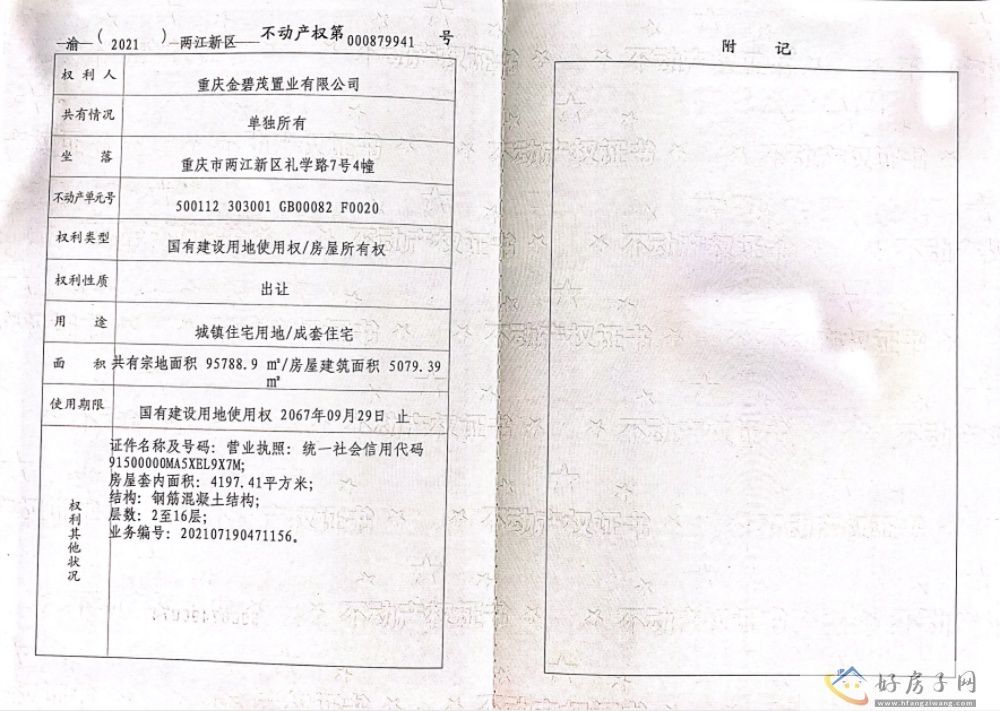 渝（2021）两江新区 不动产权第000879941号
权利人 重庆金碧茂置业有限公司
共有情况 单独所有
坐落 重庆市两江新区礼学路7号4幢
不动产单元号 500112 303001 GB00082 F0020
权利类型 国有建设用地使用权/房屋所有权
权利性质 出让
用途 城镇住宅用地/成套住宅
面积 共有宗地面积 95788.9 ㎡/房屋建筑面积 5079.39
㎡
使用期限 国有建设用地使用权 2067年09月29日 止
权利其他状况
证件名称及号码：营业执照：统一社会信用代码
91500000MA5XEL9X7M;
房屋套内面积：4197.41平方米;
结构：钢筋混凝土结构;
层数：2至16层;
业务编号：202107190471156。
附记
不动产权证书
好房子网
www.hfangziwang.com